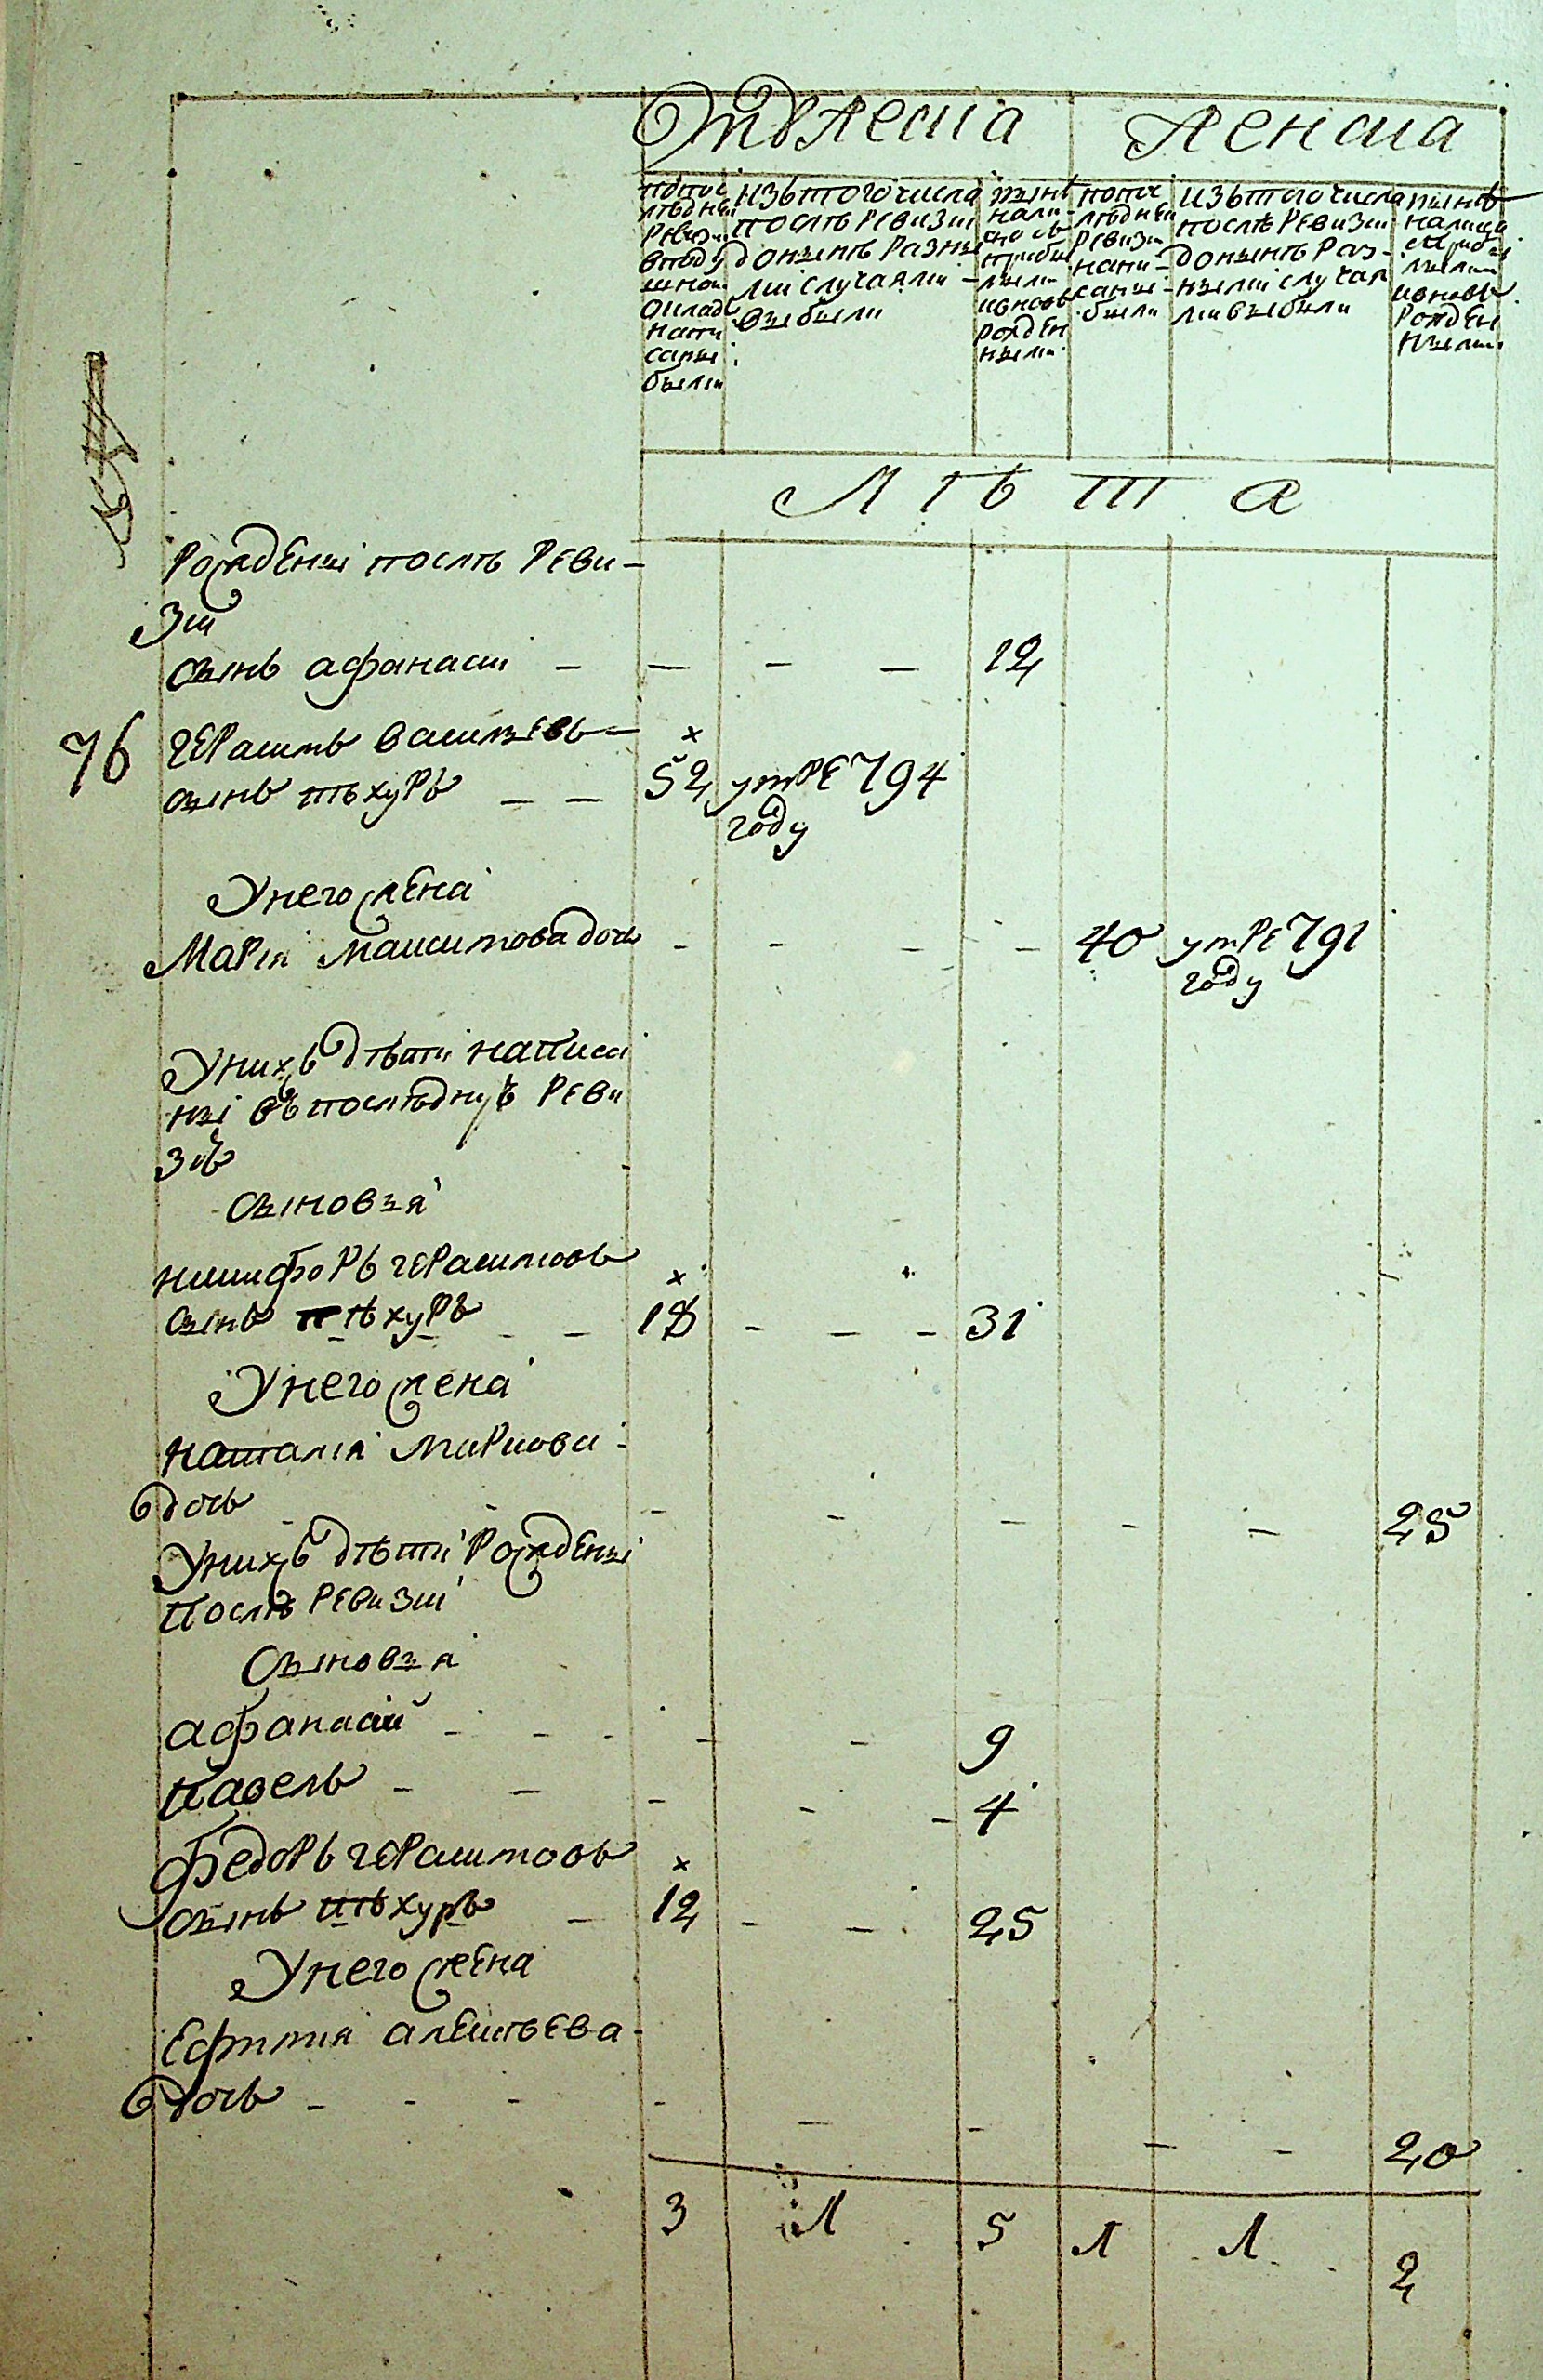 Мужеска Женска
попос
лѣдней
Ревизи
вподу
шном
окладѣ
напи
саны
были
изътогочисла
послѣ Ревизии
донынѣ Разны
ми случаями
выбыли
нынѣ
нали
ивновь
Рожден
ными
попос
лѣдней
Ревизи
напи-
саны-
были
изътого числа
послѣ Ревизии
донынѣ Раз-
ными случая
ми выбыли
нынѣ
ивновь
Рожден
ными
Л ѣ т а
Рожденыі послѣ Реви-
зиі
сынъ афанасиі — — — — 12
76 герасимъ васильевъ — ×
сынъ пѣхуръ — — 52 умре 794
году
Унего жена
Марія максимова дочь - - - - 40 умре 791
году
Унихъ дѣти написа
ныі въпослѣднуѣ Реви
зіѣ
сыновья
никифоръ герасимовъ ×
сынъ пѣхуръ - - 18 - - - 31
Унего жена
наталія маркова
дочь - - - - - - - 25
Унихъ дѣти Рожденыі
послѣ Ревизиі
Сыновья
афанасий - - - - - 9
Павелъ - - - - - 4
федоръ герасимовъ ×
сынъ пѣхуръ - 12 - - 25
Унего жена
Ефимия алексѣева
дочь - - - - - - - - 20
3 1 5 1 1 2